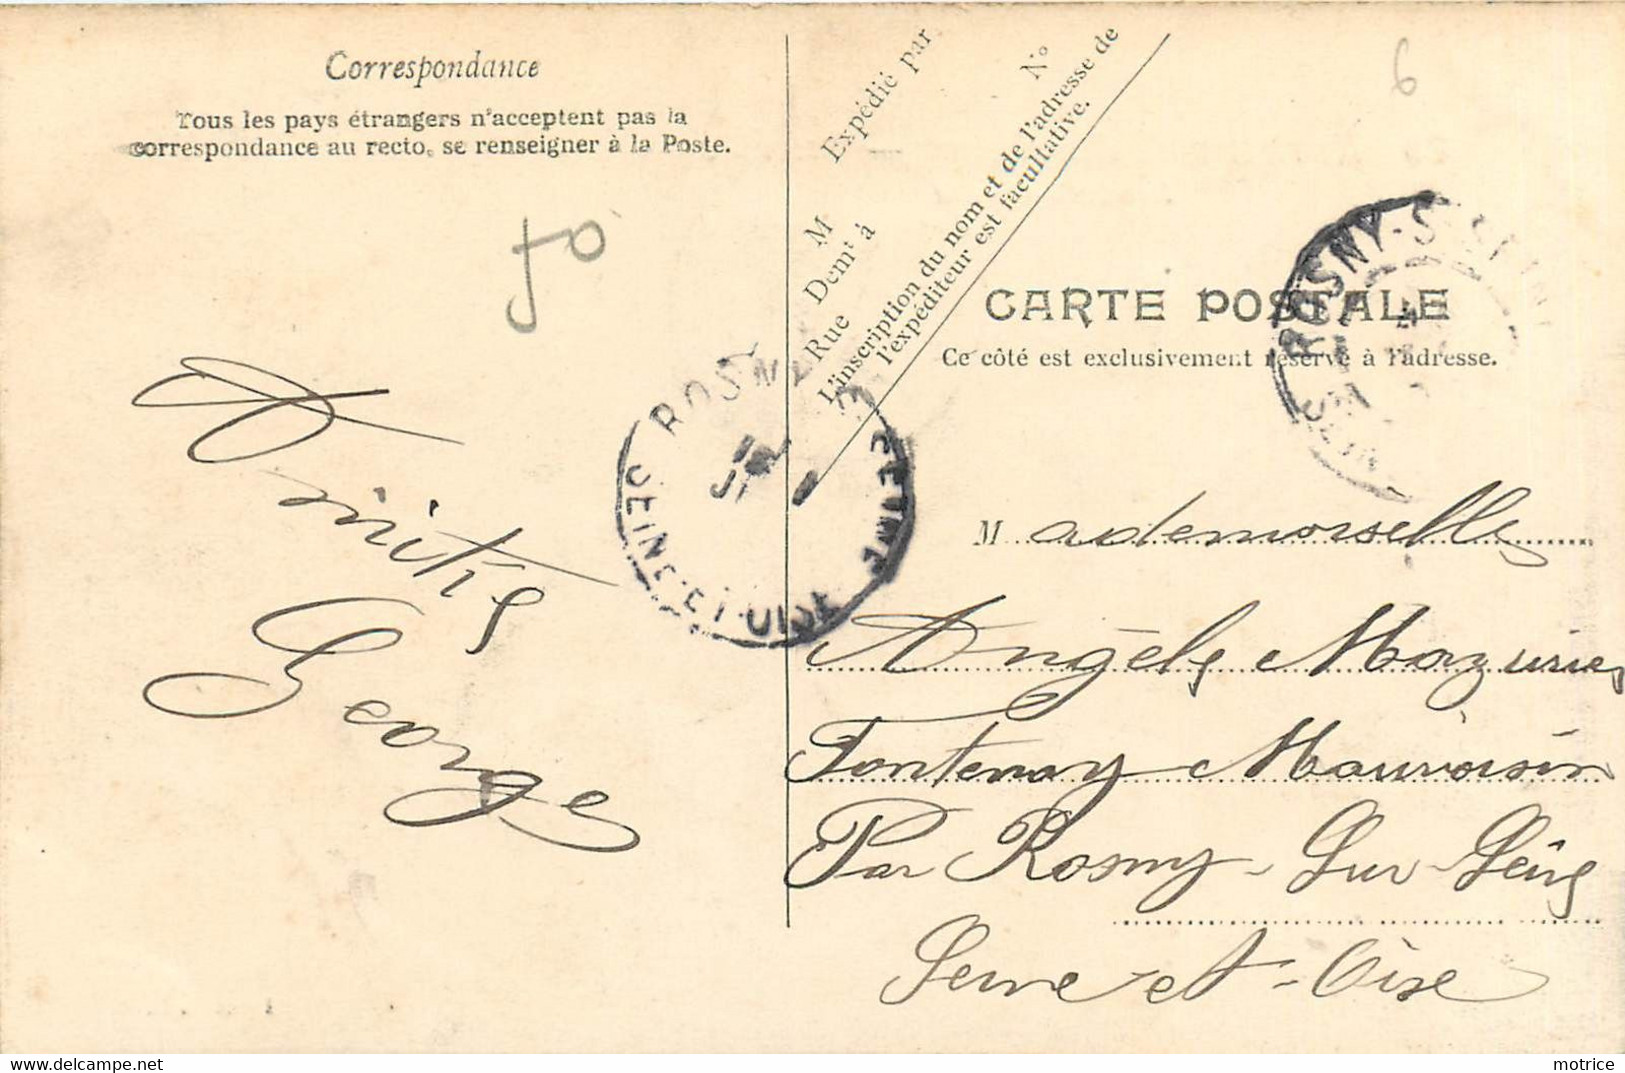 Correspondance
Tous les pays étrangers n'acceptent pas la
correspondance au recto, se renseigner à la Poste.
Expédié par
M
Dem^t à
Rue
N°
L'inscription du nom et de l'adresse de
l'expéditeur est facultative.
6
50
CARTE POSTALE
Ce côté est exclusivement réservé à l'adresse.
ROSNY-S-SEINE
SEINE
ROSNY
SEINE
SEINE-ET-OISE
Amitiés
George
Mademoiselle
Angèle Mazurier
Fontenay Mauvoisin
Par Rosny-Sur-Seine
Seine-et-Oise
delcampe.net
motrice